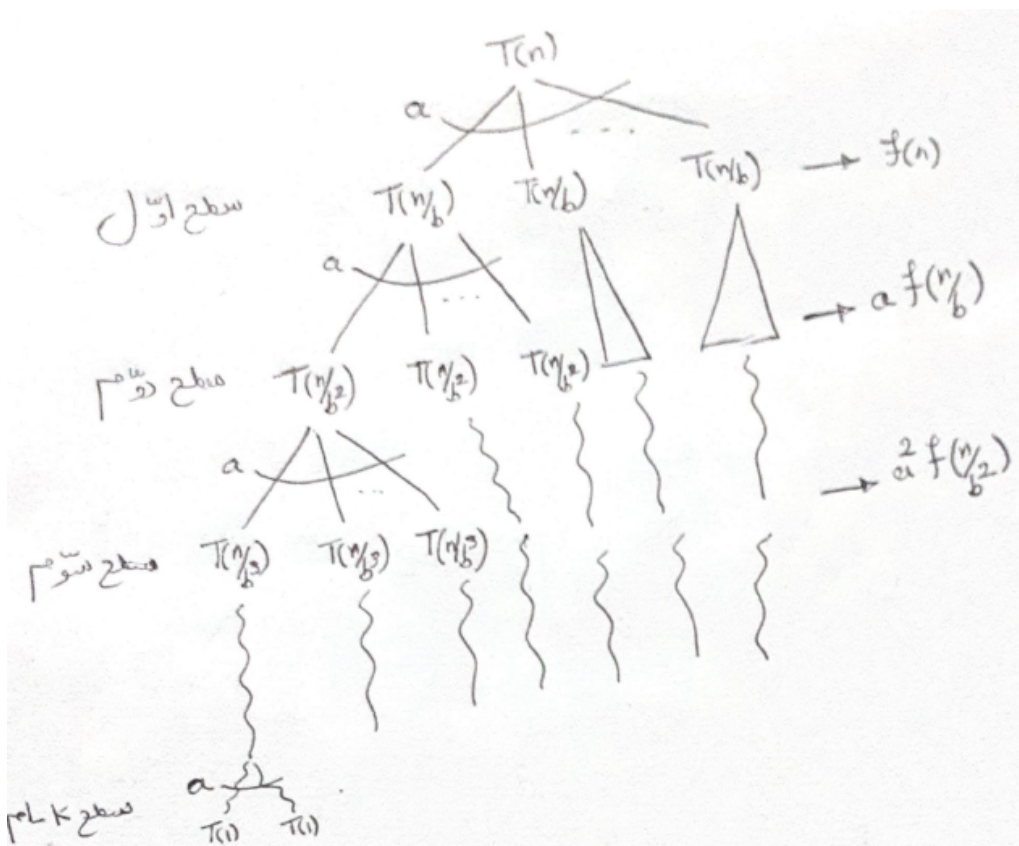 T(n)
a ....
T(n/b) T(n/b) T(n/b) → f(n)
سطح اوّل
a ...
→ a f(n/b)
سطح دوّم T(n/b²) T(n/b²) T(n/b²)
a ...
→ a² f(n/b²)
سطح سوّم T(n/b³) T(n/b³) T(n/b³)
a
سطح k ام T(1) T(1)